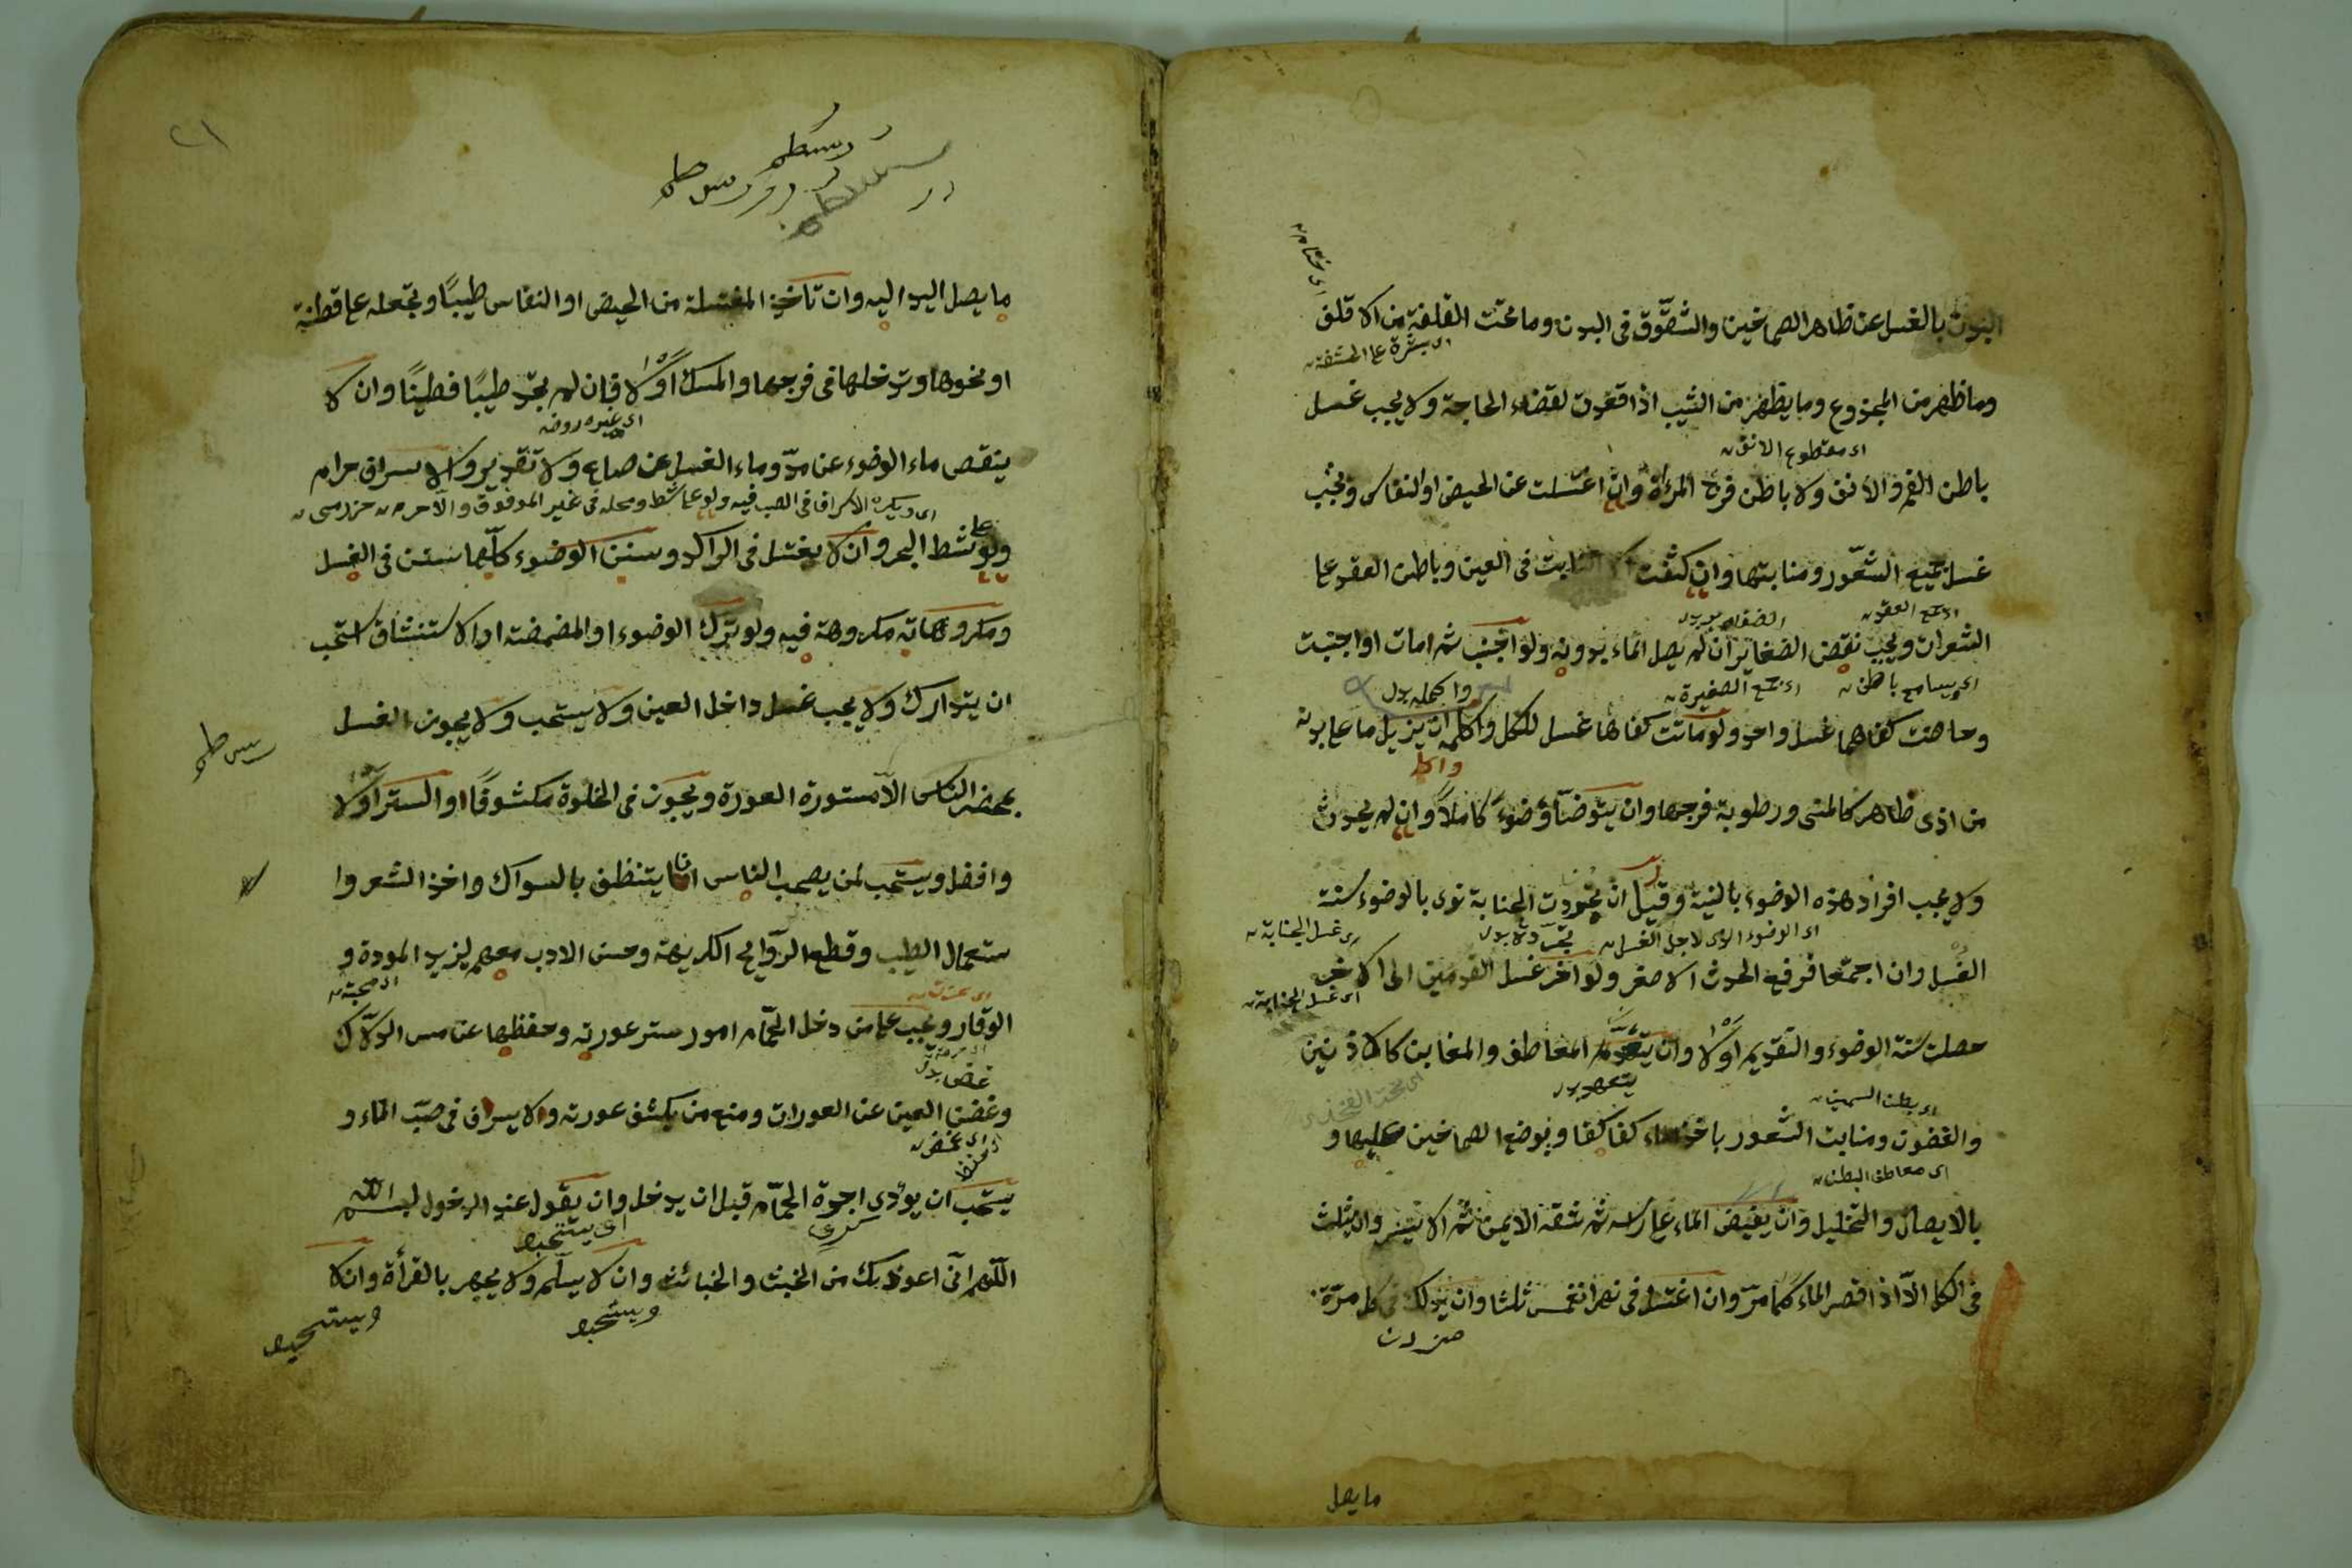 البدن بالغسل عن ظاهر الصماخين والشقوق فى البدن وما تحت القلفة من الاقلف
اى بشرة على الحشفة
وما ظهر من المجدوع وما يظهر من الثيب اذا قعدت لقضاء الحاجة ولا يجب غسل
اى مقطوع الانف
باطن الفم والأنف ولا باطن فرج المرءة وان اغتسلت عن الحيض او النفاس ويجب
غسل جميع الشعور ومنابتها وان كثفت لا النابت فى العين وباطن العقد على
الشعرات ويجب نقض الضفاير ان لم يصل الماء بدونه ولو اجنب ثم امات او اجنبت
اى يسامح باطن
وحاضت كفاهما غسل واحد ولو ماتت كفاها غسل للكل واكمله ان يزيل ما على بدنه
من اذى ظاهر كالمنى ورطوبة فرجها وان يتوضأ وضوء كاملا وان لم يحدث
ولا يجب افراد هذه الوضوء بالنية وقيل ان تجردت الجنابة نوى بالوضوء سنة
اى الوضوء الذى لاجل الغسل
اى غسل الجنابة
الغسل وان اجتمعا فرفع الحدث الاصغر ولو اخر غسل القدمين الى الاخر
اى غسل الجنابة
حصلت سنة الوضوء والتقديم اولى وان يتعهد المعاطف والمغابن كالاذنين
يتعهد بدل
والغضون ومنابت الشعور باخذ الماء كفا كفا وبوضع الصماخين عليها و
اى معاطف البطن
بالايصال والتخليل وان يفيض الماء على رأسه ثم شقه الايمن ثم الايسر وان يثلث
فى الكل الا اذا قصر الماء كما مر وان اغتسل فى نهر انغمس ثلثا وان يدلك فى كل مرة
ما يصل
٢١
ما يصل اليد اليه وان تاخذ المغتسلة من الحيض او النفاس طيبا وتجعله على قطنة
او نحوها وتدخلها فى فرجها والمسك اولى فان لم تجد طيبا فطينا وان لا
ينقص ماء الوضوء عن مد وماء الغسل عن صاع ولا تقدير والاسراف حرام
اى ويكره الاسراف فى الصب فيه ولو على شط ومحله فى غير الموقوف والا حرم
ولو على شط البحر وان لا يغتسل فى الراكد وسنن الوضوء كلها سنن فى الغسل
ومكروهاته مكروهة فيه ولو ترك الوضوء او المضمضة او الاستنشاق استحب
ان يتدارك ولا يجب غسل داخل العين ولا يستحب ولا يجوز الغسل
بحضر الناس الا مستورة العورة ويجوز فى الخلوة مكشوفا والستر اولى
وافضل ويستحب لمن يصحب الناس ان يتنظف بالسواك واخذ الشعر وا
ستعمال الطيب وقطع الروايح الكريهة وحسن الادب معهم لزيد المودة و
اى محبة
الوقار ويجب على من دخل الحمام امور ستر عورته وحفظها عن مس الدلاك
وغض العين عن العورات ومنع من يكشف عورته والاسراف فى صب الماء و
يستحب ان يؤدى اجرة الحمام قبل ان يدخل وان يقول عند الدخول بسم الله
اى يستحب
اللهم انى اعوذ بك من الخبث والخبائث وان لا يسلم ولا يجهر بالقرأة وان لا
ويستحب
ويستحب